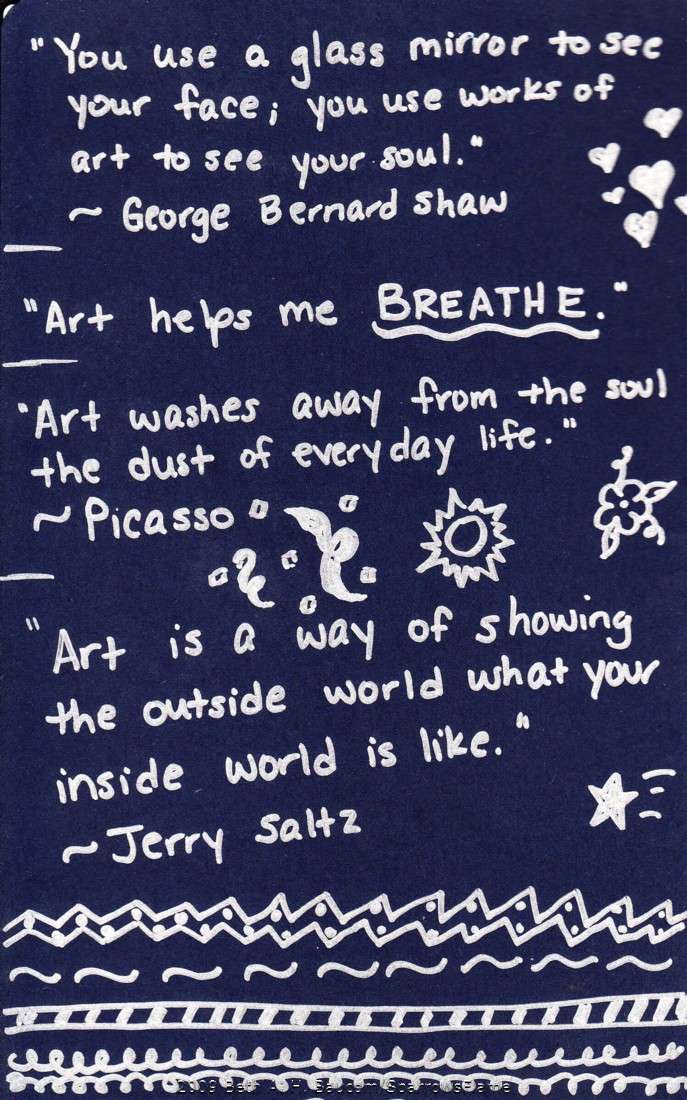 "You use a glass mirror to see
your face; you use works of
art to see your soul."
~ George Bernard Shaw
"Art helps me BREATHE."
"Art washes away from the soul
the dust of everyday life."
~ Picasso
"Art is a way of showing
the outside world what your
inside world is like."
~ Jerry Saltz
2009 Beth A